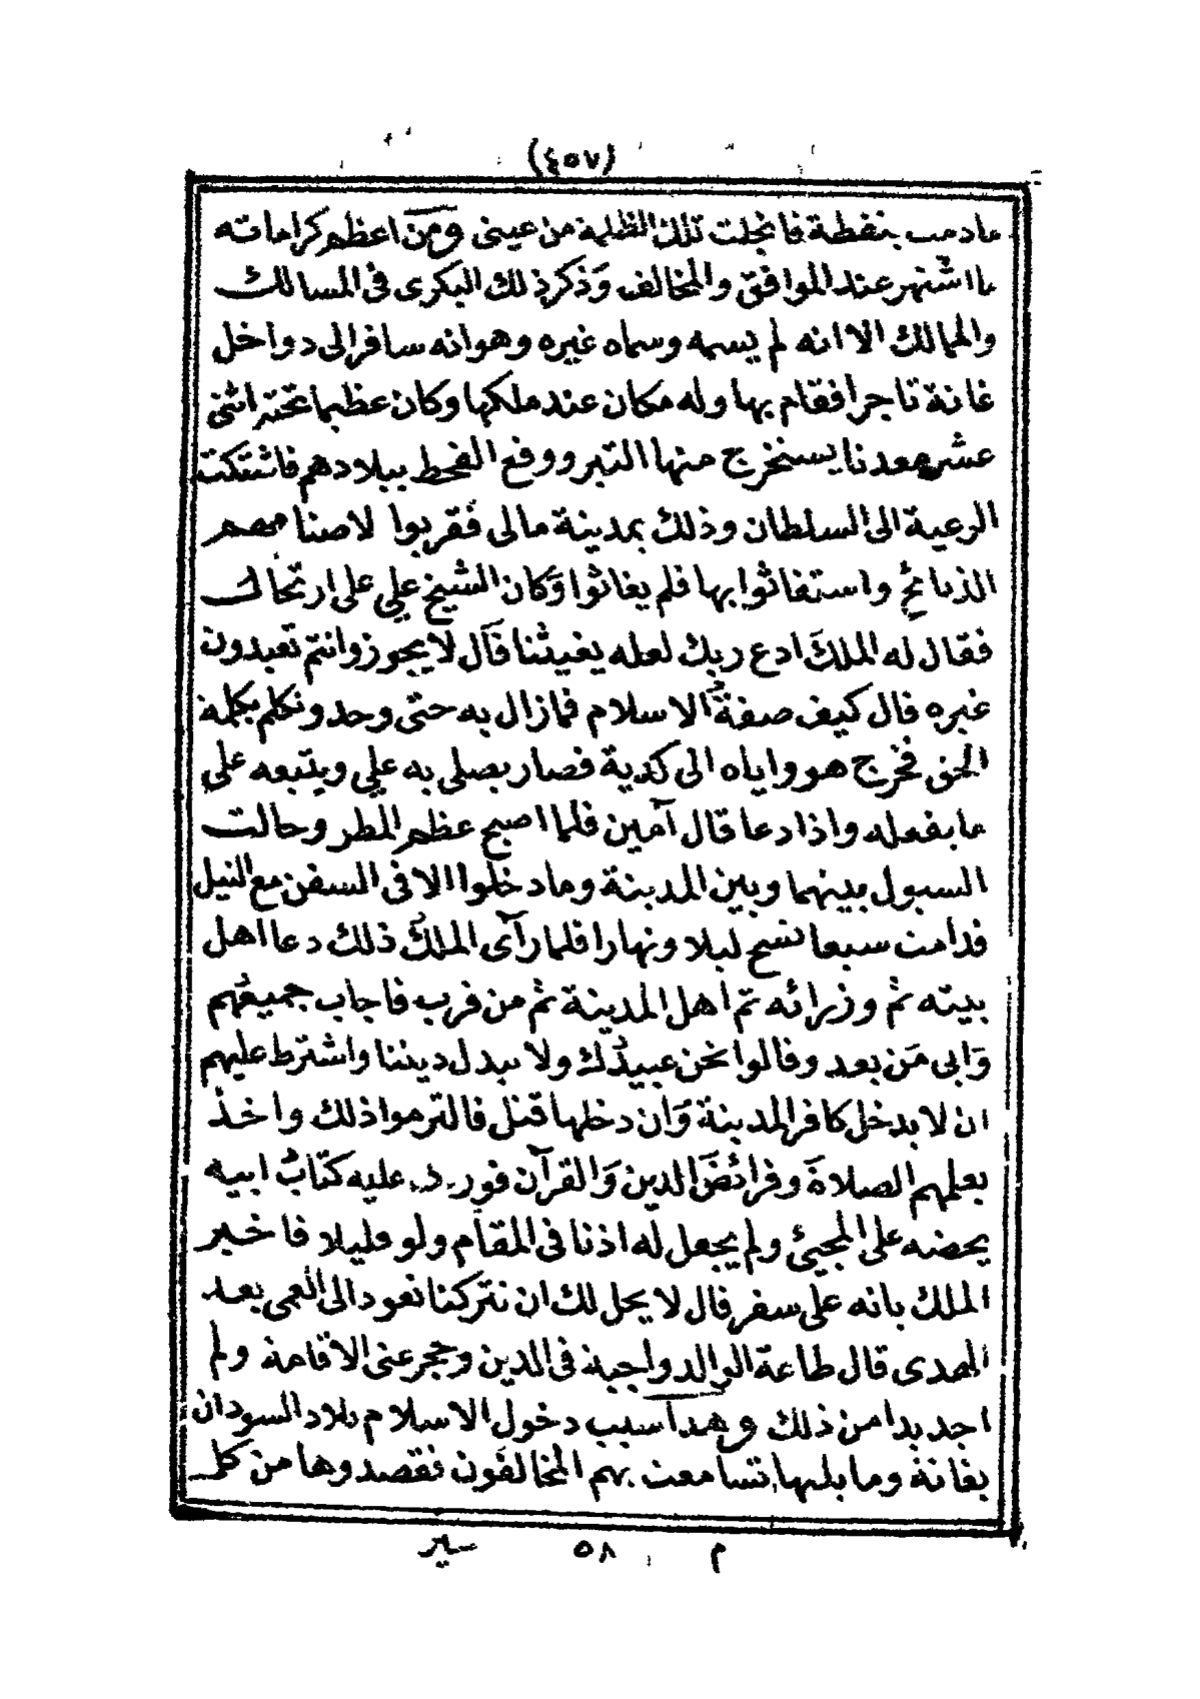 (٤٥٧)
مادمت بنفطة فانجلت تلك الظلمة من عينى ومن اعظم كراماته
ما اشتهر عند الموافق والمخالف وذكر ذلك البكرى فى المسالك
والممالك الا انه لم يسمه وسماه غيره وهو انه سافر الى دواخل
غانة تاجرا فقام بها وله مكان عند ملكها وكان عظيما تحته اثنى
عشر معدنا يستخرج منها التبر ووقع القحط ببلادهم فاشتكت
الرعية الى السلطان وذلك بمدينة مالى فقربوا لاصنامهم
الذبائح واستغاثوا بها فلم يغاثوا وكان الشيخ علي على ارتحال
فقال له الملك ادع ربك لعله يغيثنا قال لا يجوز وانتم تعبدون
غيره قال كيف صفة الاسلام فمازال به حتى وحد وتكلم بكلمة
الحق فخرج هو واياه الى كدية فصار يصلى به علي ويتبعه على
ما يفعله واذا دعا قال آمين فلما اصبح عظم المطر وحالت
السيول بينهما وبين المدينة وما دخلوا الا فى السفن مع النيل
فدامت سبعا تسح ليلا ونهارا فلما رآى الملك ذلك دعا اهل
بيته ثم وزرائه ثم اهل المدينة ثم من قرب فاجاب جميعهم
وابى من بعد وقالوا نحن عبيدك ولا نبدل ديننا واشترط عليهم
ان لا يدخل كافر المدينة وان دخلها قتل فالتزموا ذلك واخذ
يعلمهم الصلاة وفرائض الدين والقرآن فورد عليه كتاب ابيه
يحضه على المجيئ ولم يجعل له اذنا فى المقام ولو قليلا فاخبر
الملك بانه على سفر قال لا يحل لك ان تتركنا نعود الى العمى بعد
الهدى قال طاعة الوالد واجبة فى الدين وحجر عنى الاقامة ولم
اجد بدا من ذلك وهذا سبب دخول الاسلام بلاد السودان
بغانة وما يليها تسامعت بهم المخالفون فقصدوها من كل
م ٥٨ سير